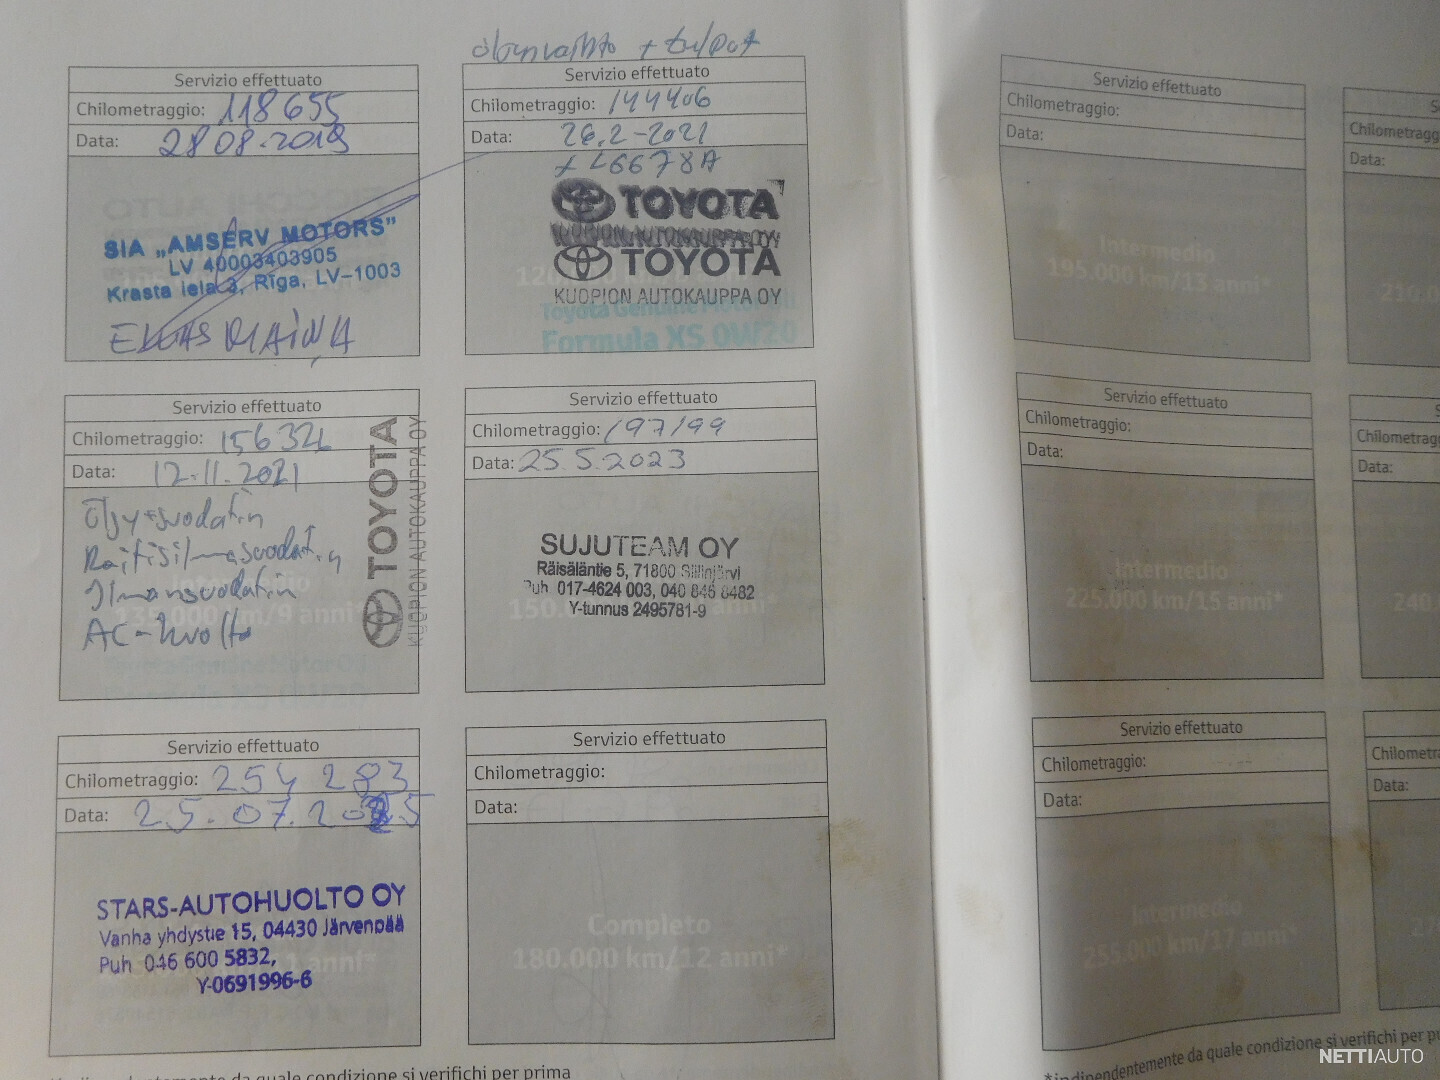 öljynvaihto + tulpat
Servizio effettuato
Chilometraggio: 118655
Data: 28 08.2019
SIA „AMSERV MOTORS”
LV 40003403905
Krasta iela 3, Rīga, LV-1003
EĻĻAS MAIŅA
Servizio effettuato
Chilometraggio: 144406
Data: 26.2-2021
TOYOTA
KUOPION AUTOKAUPPA OY
TOYOTA
KUOPION AUTOKAUPPA OY
120.000 km
Toyota Genuine Motor Oil
Formula XS 0W20
Servizio effettuato
Chilometraggio: 156326
Data: 12.11.2021
Öljy+suodatin
Raitisilmasuodatin
Ilmansuodatin
AC-huolto
TOYOTA
KUOPION AUTOKAUPPA OY
135.000 km/9 anni*
Servizio effettuato
Chilometraggio: 197199
Data: 25.5.2023
SUJUTEAM OY
Räisäläntie 5, 71800 Siilinjärvi
Puh 017-4624 003, 040 846 8482
Y-tunnus 2495781-9
150.000
Servizio effettuato
Chilometraggio: 254 283
Data: 25.07.2025
STARS-AUTOHUOLTO OY
Vanha yhdystie 15, 04430 Järvenpää
Puh 046 600 5832,
Y-0691996-6
anni*
Servizio effettuato
Chilometraggio:
Data:
Completo
180.000 km/12 anni*
Servizio effettuato
Chilometraggio:
Data:
Intermedio
195.000 km/13 anni*
Chilometragg
Data:
210.0
Servizio effettuato
Chilometraggio:
Data:
Intermedio
225.000 km/15 anni*
Chilometragg
Data:
240.
Servizio effettuato
Chilometraggio:
Data:
Intermedio
255.000 km/17 anni*
Chilometra
Data:
270
quale condizione si verifichi per prima
*indipendentemente da quale condizione si verifichi per p
NETTIAUTO